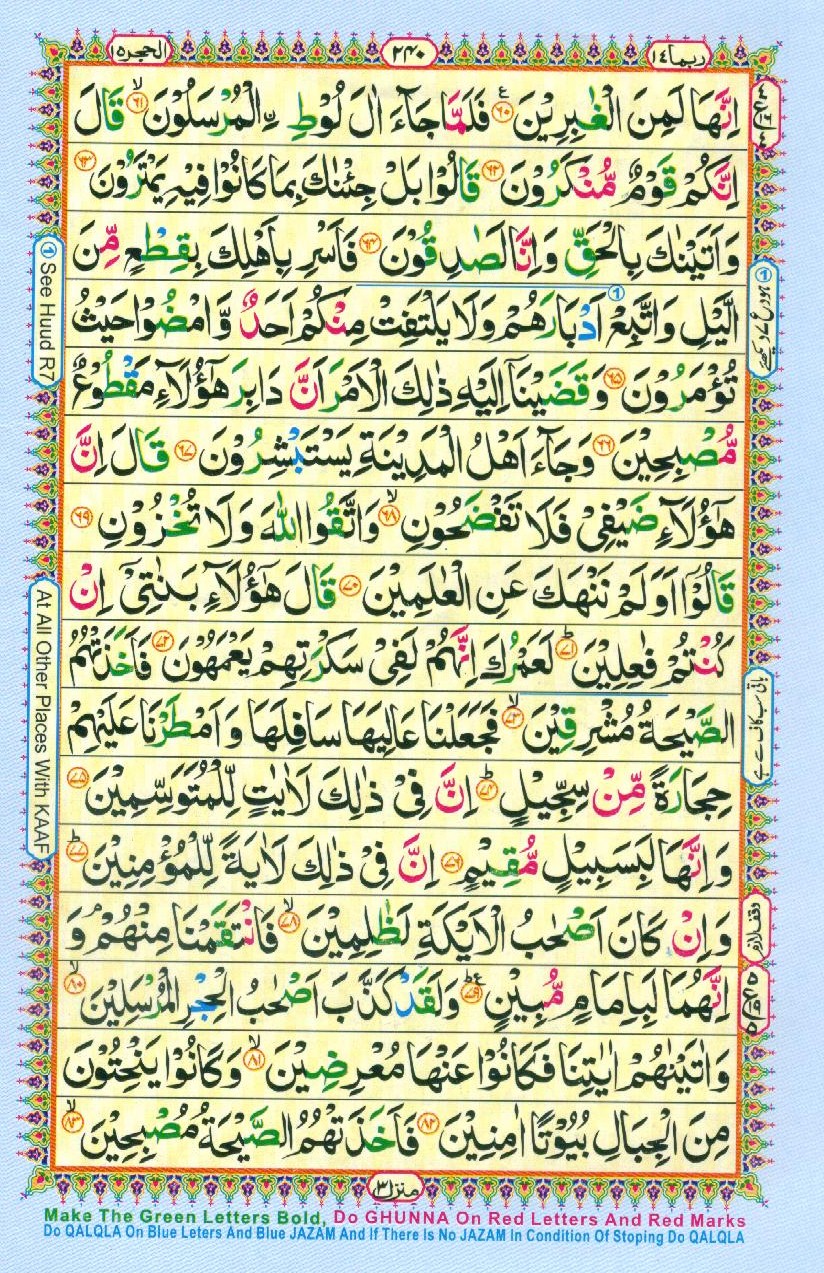 ربما ١٤
٢٤٠
الحجر ١٥
اِنَّهَا لَمِنَ الْغٰبِرِيْنَ ﴿٦٠﴾ فَلَمَّا جَآءَ اٰلَ لُوْطِ ࣙالْمُرْسَلُوْنَ ﴿٦١﴾ قَالَ
اِنَّكُمْ قَوْمٌ مُّنْكَرُوْنَ ﴿٦٢﴾ قَالُوْا بَلْ جِئْنٰكَ بِمَا كَانُوْا فِيْهِ يَمْتَرُوْنَ ﴿٦٣﴾
وَاَتَيْنٰكَ بِالْحَقِّ وَاِنَّا لَصٰدِقُوْنَ ﴿٦٤﴾ فَاَسْرِ بِاَهْلِكَ بِقِطْعٍ مِّنَ
الَّيْلِ وَاتَّبِعْ اَدْبَارَهُمْ وَلَا يَلْتَفِتْ مِنْكُمْ اَحَدٌ وَّامْضُوْا حَيْثُ
تُؤْمَرُوْنَ ﴿٦٥﴾ وَقَضَيْنَآ اِلَيْهِ ذٰلِكَ الْاَمْرَ اَنَّ دَابِرَ هٰٓؤُلَآءِ مَقْطُوْعٌ
مُّصْبِحِيْنَ ﴿٦٦﴾ وَجَآءَ اَهْلُ الْمَدِيْنَةِ يَسْتَبْشِرُوْنَ ﴿٦٧﴾ قَالَ اِنَّ
هٰٓؤُلَآءِ ضَيْفِيْ فَلَا تَفْضَحُوْنِ ﴿٦٨﴾ وَاتَّقُوا اللّٰهَ وَلَا تُخْزُوْنِ ﴿٦٩﴾
قَالُوْٓا اَوَلَمْ نَنْهَكَ عَنِ الْعٰلَمِيْنَ ﴿٧٠﴾ قَالَ هٰٓؤُلَآءِ بَنٰتِيْٓ اِنْ
كُنْتُمْ فٰعِلِيْنَ ﴿٧١﴾ لَعَمْرُكَ اِنَّهُمْ لَفِيْ سَكْرَتِهِمْ يَعْمَهُوْنَ ﴿٧٢﴾ فَاَخَذَتْهُمُ
الصَّيْحَةُ مُشْرِقِيْنَ ﴿٧٣﴾ فَجَعَلْنَا عَالِيَهَا سَافِلَهَا وَاَمْطَرْنَا عَلَيْهِمْ
حِجَارَةً مِّنْ سِجِّيْلٍ ﴿٧٤﴾ اِنَّ فِيْ ذٰلِكَ لَاٰيٰتٍ لِّلْمُتَوَسِّمِيْنَ ﴿٧٥﴾
وَاِنَّهَا لَبِسَبِيْلٍ مُّقِيْمٍ ﴿٧٦﴾ اِنَّ فِيْ ذٰلِكَ لَاٰيَةً لِّلْمُؤْمِنِيْنَ ﴿٧٧﴾
وَاِنْ كَانَ اَصْحٰبُ الْاَيْكَةِ لَظٰلِمِيْنَ ﴿٧٨﴾ فَانْتَقَمْنَا مِنْهُمْ وَ
اِنَّهُمَا لَبِاِمَامٍ مُّبِيْنٍ ﴿٧٩﴾ وَلَقَدْ كَذَّبَ اَصْحٰبُ الْحِجْرِ الْمُرْسَلِيْنَ ﴿٨٠﴾
وَاٰتَيْنٰهُمْ اٰيٰتِنَا فَكَانُوْا عَنْهَا مُعْرِضِيْنَ ﴿٨١﴾ وَكَانُوْا يَنْحِتُوْنَ
مِنَ الْجِبَالِ بُيُوْتًا اٰمِنِيْنَ ﴿٨٢﴾ فَاَخَذَتْهُمُ الصَّيْحَةُ مُصْبِحِيْنَ ﴿٨٣﴾
منزل ٣
① See Huud R7
At All Other Places With KAAF
Make The Green Letters Bold, Do GHUNNA On Red Letters And Red Marks
Do QALQLA On Blue Leters And Blue JAZAM And If There Is No JAZAM In Condition Of Stoping Do QALQLA